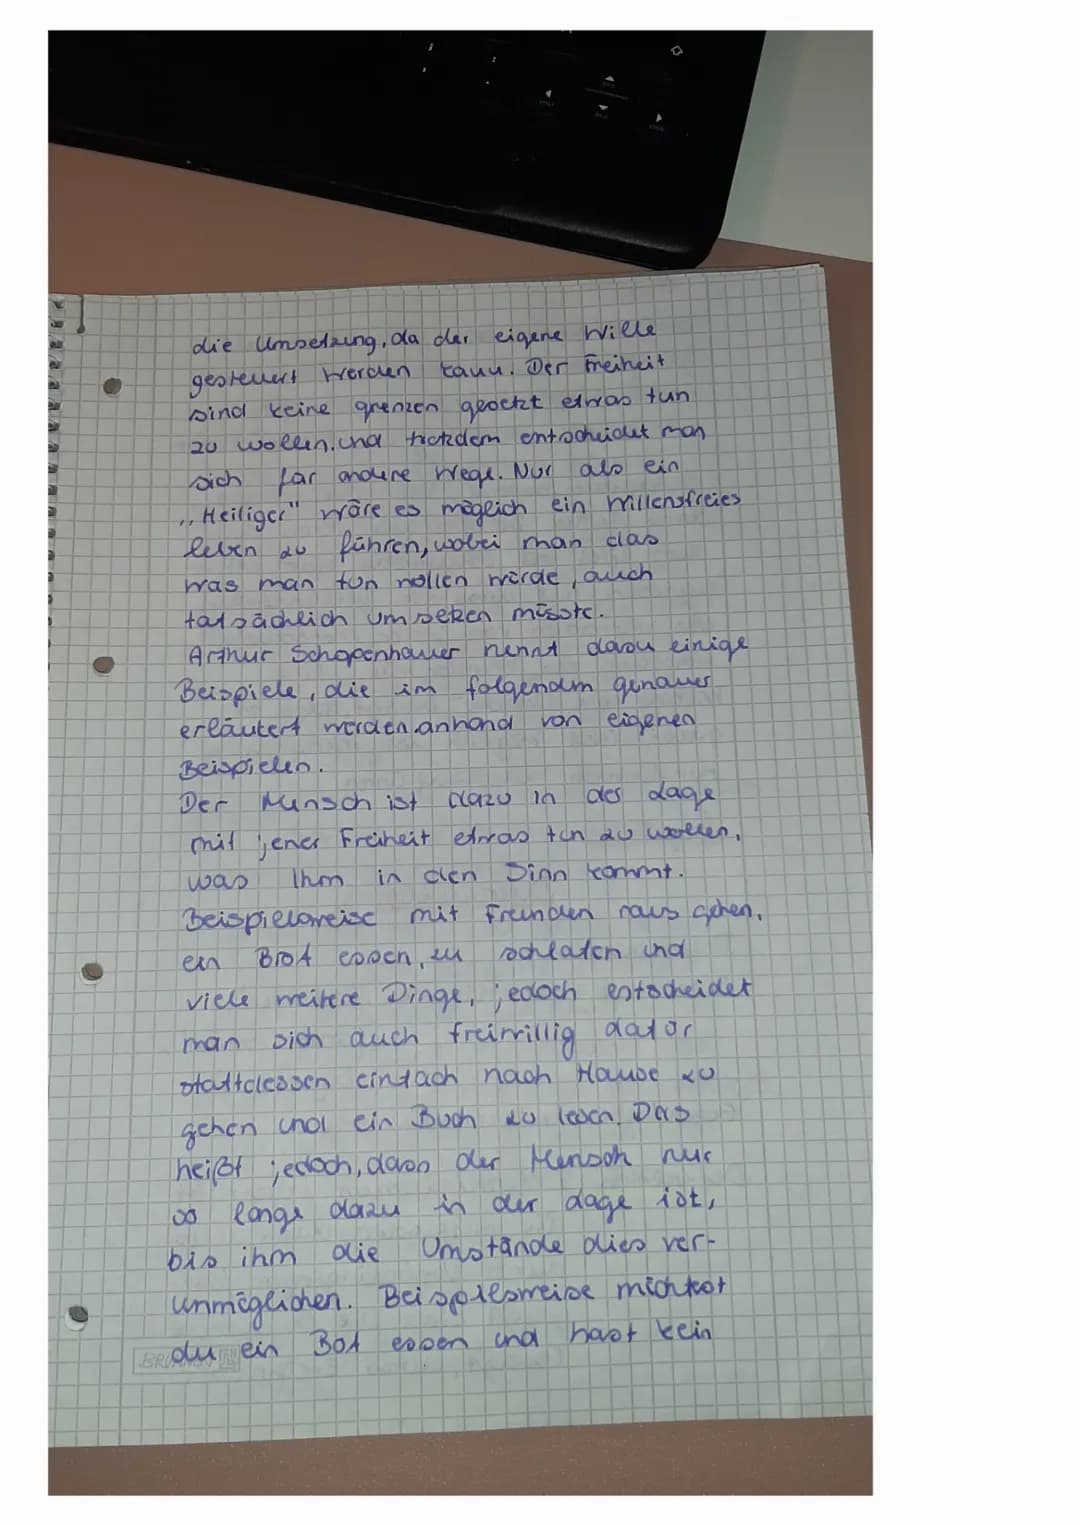 die Umsetzung, da der eigene Wille
gesteuert werden kann. Der Freiheit
sind keine grenzen gesetzt etwas tun
zu wollen. und trotzdem entscheidet man
sich für andere Wege. Nur als ein
„Heiliger" wäre es möglich ein willensfreies
leben zu führen, wobei man das
was man tun wollen würde, auch
tatsächlich umsetzen müsste.
Arthur Schopenhauer nennt dazu einige
Beispiele, die im folgendem genauer
erläutert werden anhand von eigenen
Beispielen.
Der Mensch ist dazu in der Lage
mit jener Freiheit etwas tun zu wollen,
was Ihm in den Sinn kommt.
Beispielsweise mit Freunden raus gehen,
ein Brot essen, zu schlafen und
viele weitere Dinge, jedoch entscheidet
man sich auch freiwillig dafür
stattdessen einfach nach Hause zu
gehen und ein Buch zu lesen. Das
heißt jedoch, dass der Mensch nur
so lange dazu in der Lage ist,
bis ihm die Umstände dies ver-
unmöglichen. Beispielsweise möchtest
du ein Bot essen und hast kein